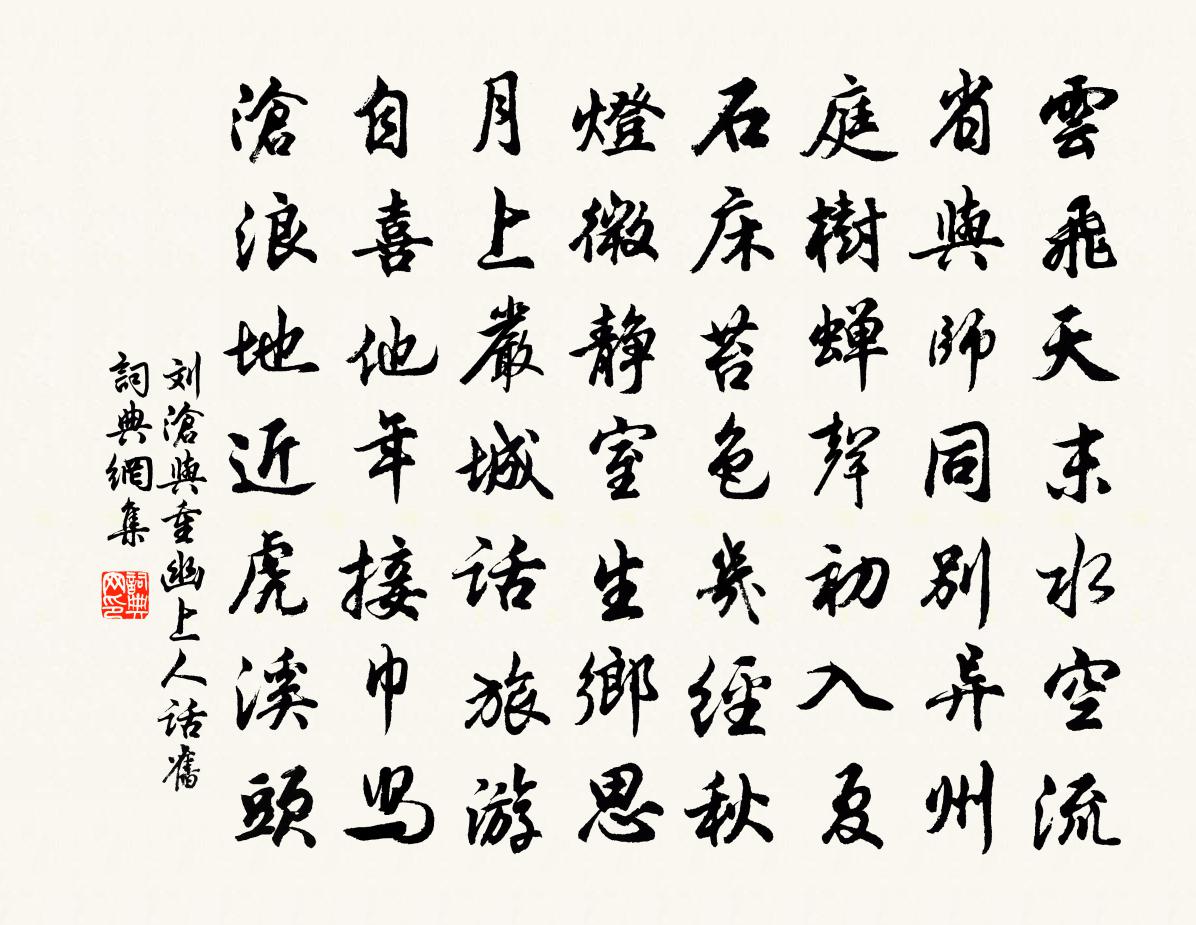 雲飛天末水空流
省與師同別异州
庭樹蟬聲初入夏
石床苔色幾經秋
燈微靜室生鄉思
月上嚴城話旅游
自喜他年接巾舄
滄浪地近虎溪頭
刘滄與重幽上人話舊
詞典網集
詞典网印